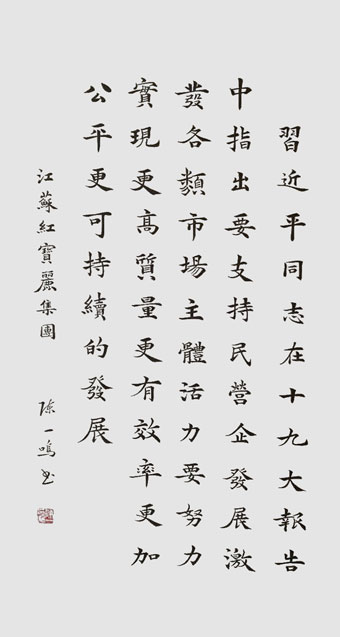 習近平同志在十九大報告
中指出要支持民營企發展激
發各類市場主體活力要努力
實現更高質量更有效率更加
公平更可持續的發展
江蘇紅寶麗集團
陳一鳴書